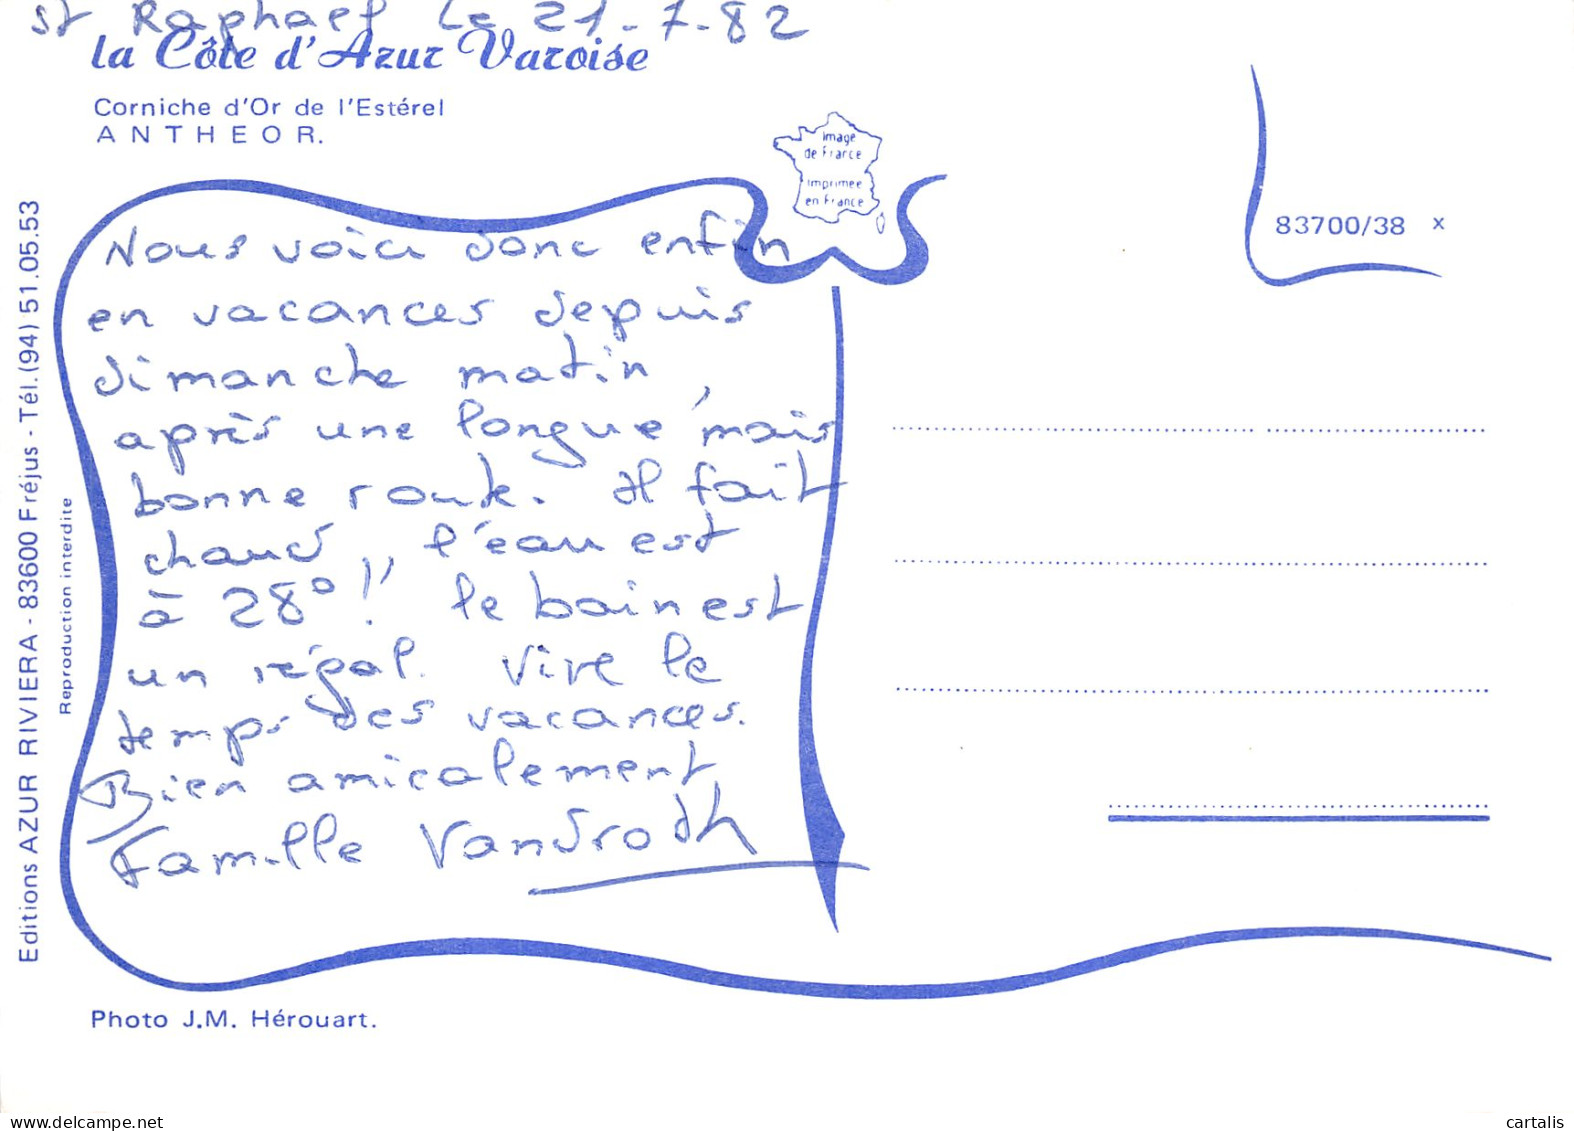 St Raphael Le 21-7-82
la Côte d'Azur Varoise
Corniche d'Or de l'Estérel
ANTHEOR.
Image
de France
Imprimée
en France
83700/38 x
Editions AZUR RIVIERA - 83600 Fréjus - Tél. (94) 51.05.53
Reproduction interdite
Nous voici donc enfin
en vacances depuis
dimanche matin,
après une longue mais
bonne route. Il fait
chaud, l'eau est
à 28° !! le bain est
un régal. Vive le
temps des vacances.
Bien amicalement
Famille Vandroth
Photo J.M. Hérouart.
delcampe.net
cartalis